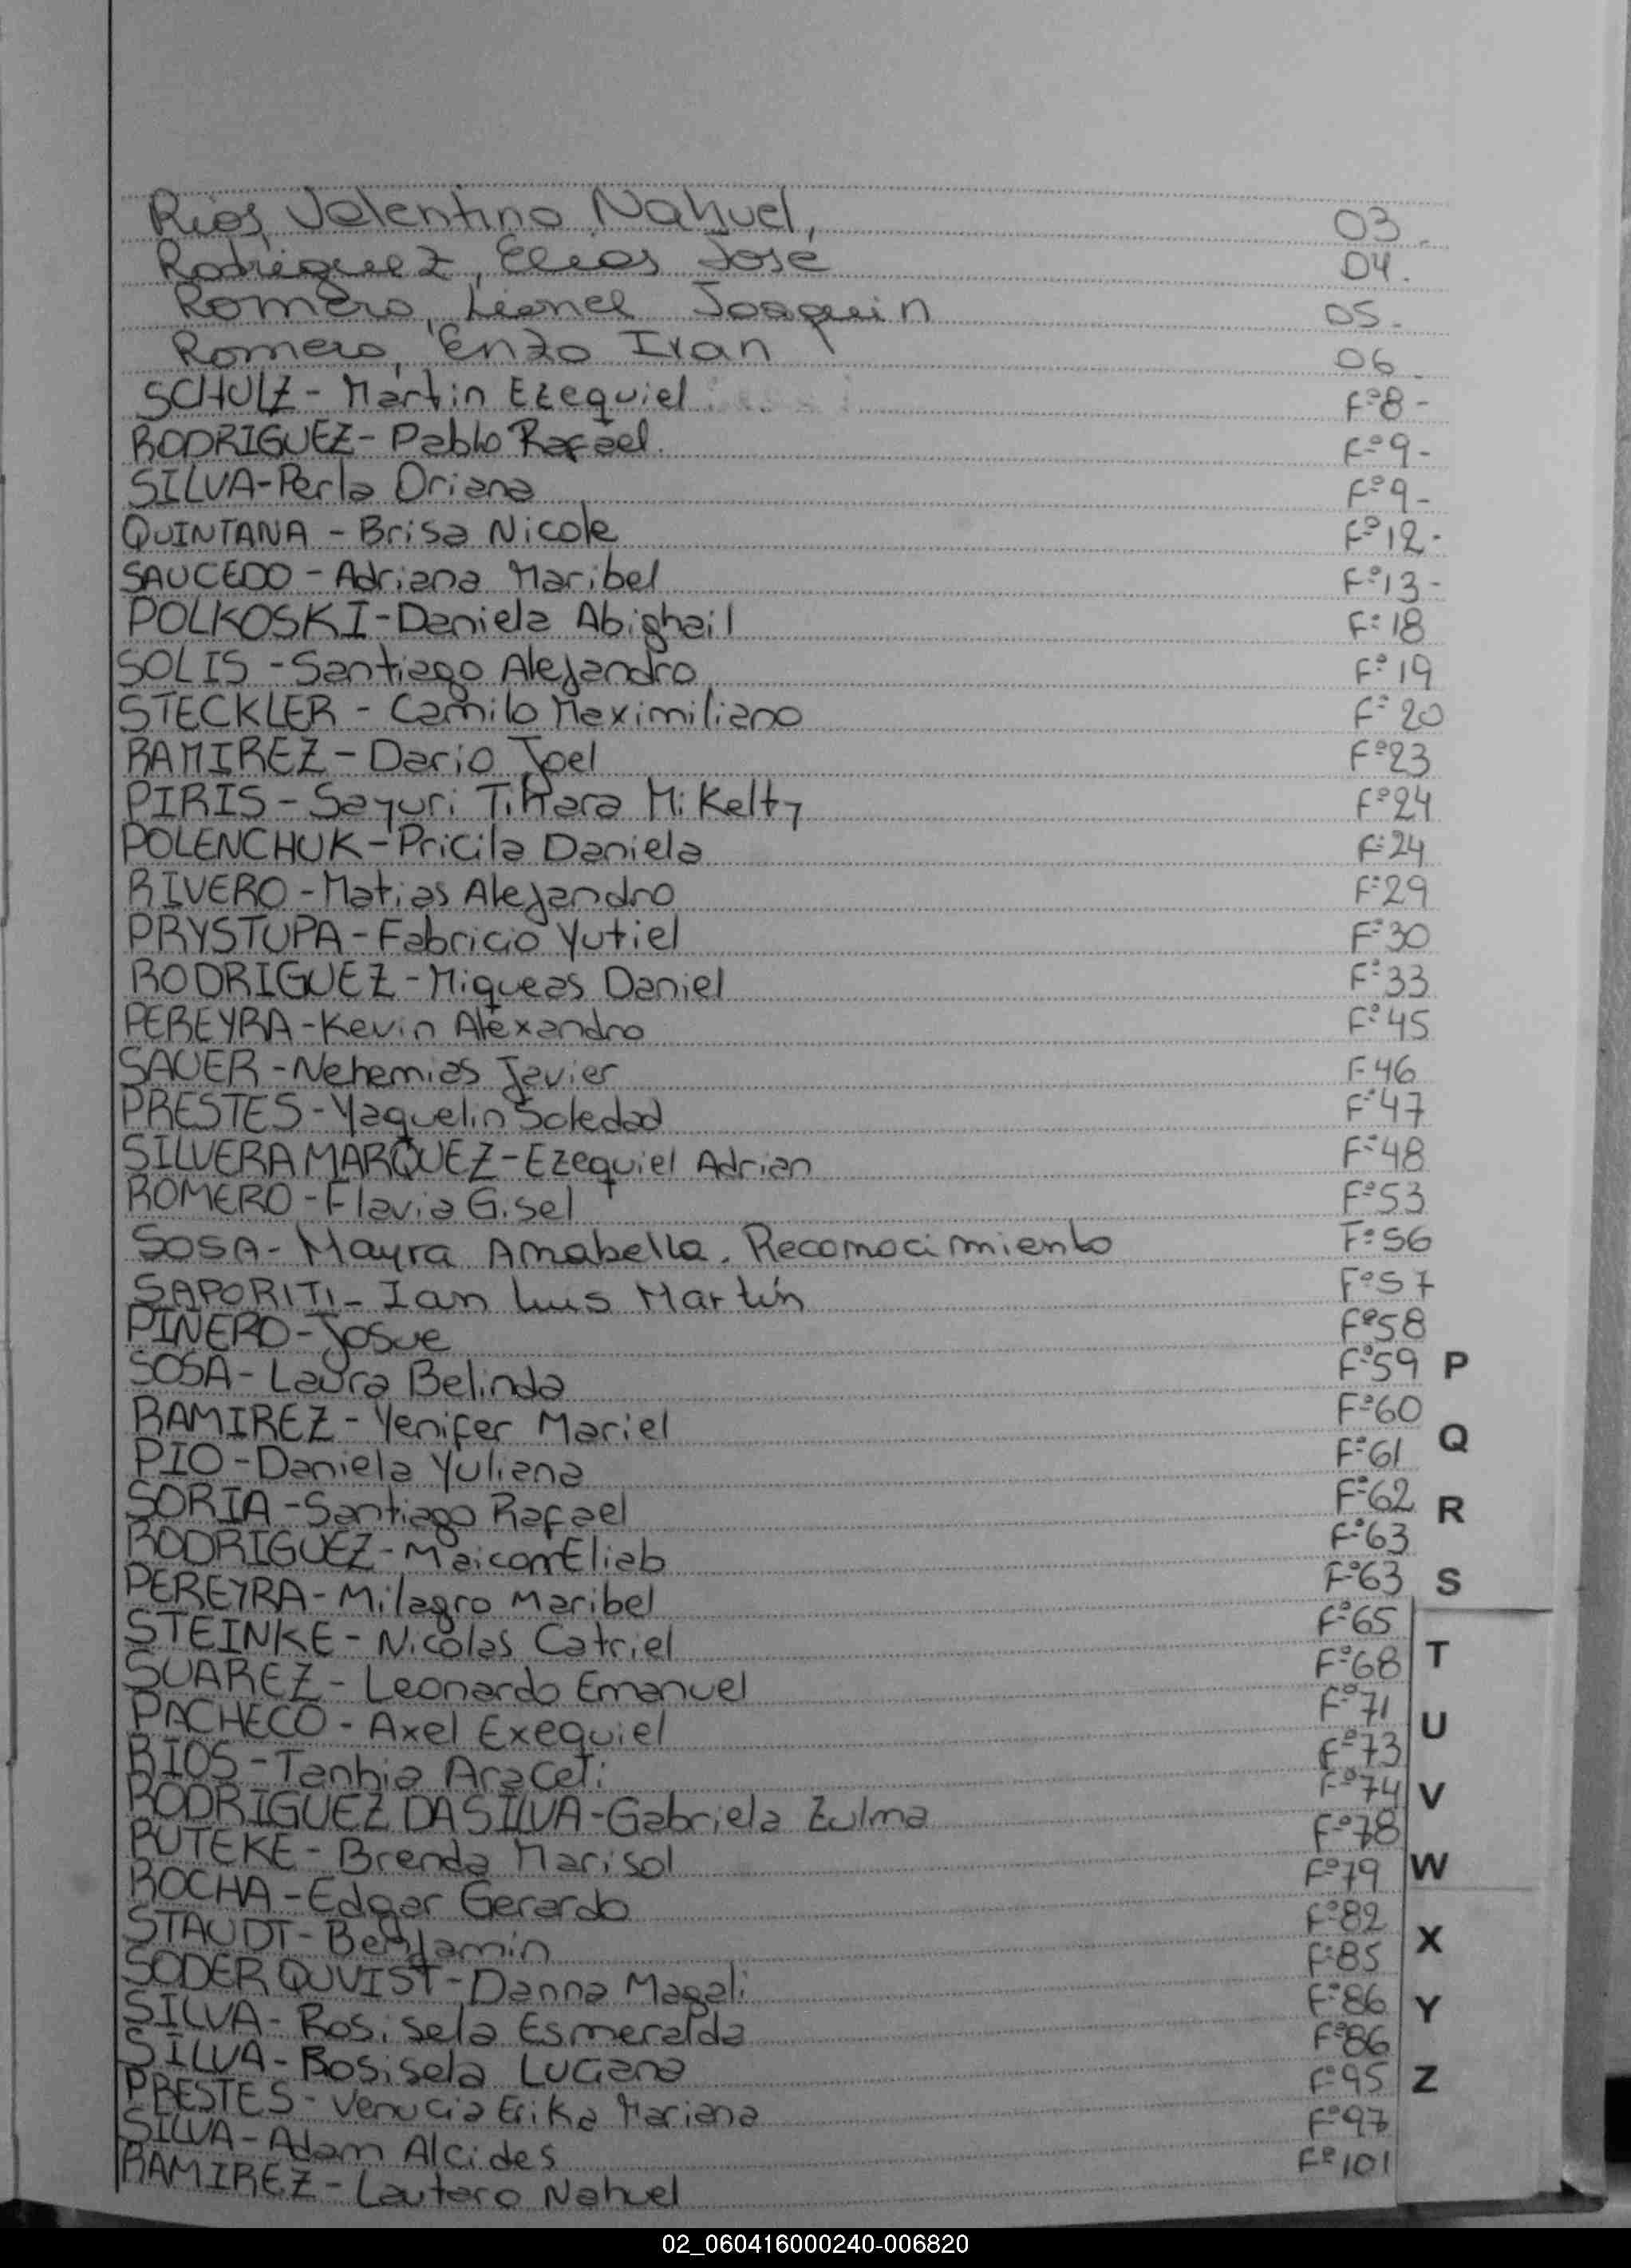 Rios, Valentino Nahuel, 03.
Rodriguez, Elias José 04.
Romero, Lionel Joaquin 05.
Romero, Enzo Ivan 06.
SCHULZ - Martin Ezequiel Fº8-
RODRIGUEZ - Pablo Rafael. Fº9-
SILVA - Perla Oriana Fº9-
QUINTANA - Brisa Nicole Fº12-
SAUCEDO - Adriana Maribel Fº13-
POLKOSKI - Daniela Abighail Fº18
SOLIS - Santiago Alejandro Fº19
STECKLER - Camilo Maximiliano Fº20
RAMIREZ - Dario Joel Fº23
PIRIS - Sayuri Tihara Mikelty Fº24
POLENCHUK - Pricila Daniela Fº24
RIVERO - Matias Alejandro Fº29
PRYSTUPA - Fabricio Yutiel Fº30
RODRIGUEZ - Miqueas Daniel Fº33
PEREYRA - Kevin Alexandro Fº45
SAUER - Nehemias Javier F-46
PRESTES - Yaquelin Soledad Fº47
SILVERA MARQUEZ - Ezequiel Adrian Fº48
ROMERO - Flavia Gisel Fº53
SOSA - Mayra Anabella. Reconocimiento Fº56
SAPORITI - Ian Luis Martín Fº57
PINERO - Josue Fº58
SOSA - Laura Belinda Fº59 P
RAMIREZ - Yenifer Mariel Fº60
PIO - Daniela Yuliana Fº61 Q
SORIA - Santiago Rafael Fº62 R
RODRIGUEZ - Maicom Eliab Fº63
PEREYRA - Milagro Maribel Fº63 S
STEINKE - Nicolas Catriel Fº65
SUAREZ - Leonardo Emanuel Fº68 T
PACHECO - Axel Exequiel Fº71 U
RIOS - Tanhia Araceti Fº73
RODRIGUEZ DA SILVA - Gabriela Zulma Fº74 V
PUTEKE - Brenda Marisol Fº78
ROCHA - Edgar Gerardo Fº79 W
STAUDT - Benjamin Fº82 X
SODERQUVIST - Danna Magali Fº85
SILVA - Rosisela Esmeralda Fº86 Y
SILVA - Rosisela Luciana Fº86
PRESTES - Venucia Erika Mariana Fº95 Z
SILVA - Adam Alcides Fº97
RAMIREZ - Lautaro Nahuel Fº101
02_060416000240-006820